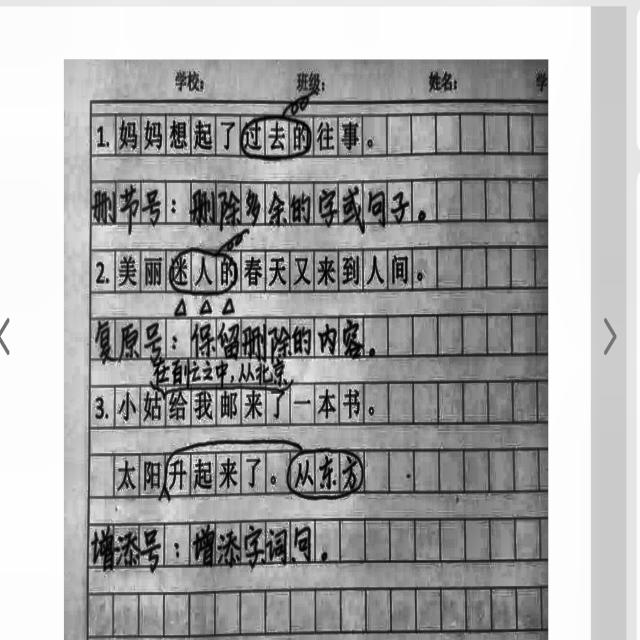 学校: 班级: 姓名: 学
1. 妈妈想起了过去的往事。
删节号：删除多余的字或句子。
2. 美丽迷人的春天又来到人间。
复原号：保留删除的内容。
在百忙之中,从北京
3. 小姑给我邮来了一本书。
太阳升起来了。从东方
增添号：增添字词句。